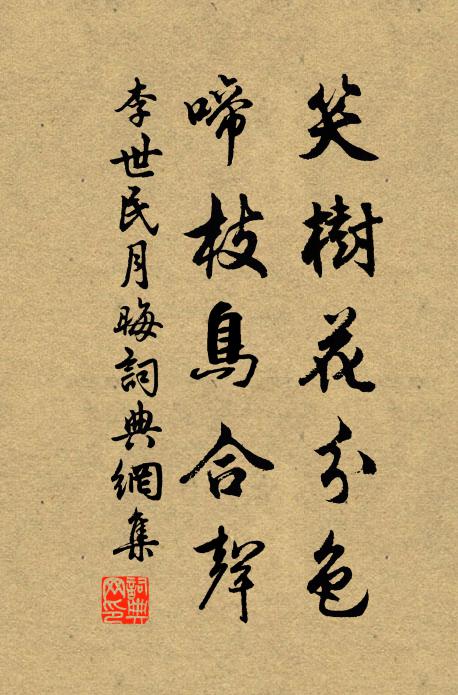 笑樹花分色
啼枝鳥合聲
李世民月晦詞典網集
詞典网印